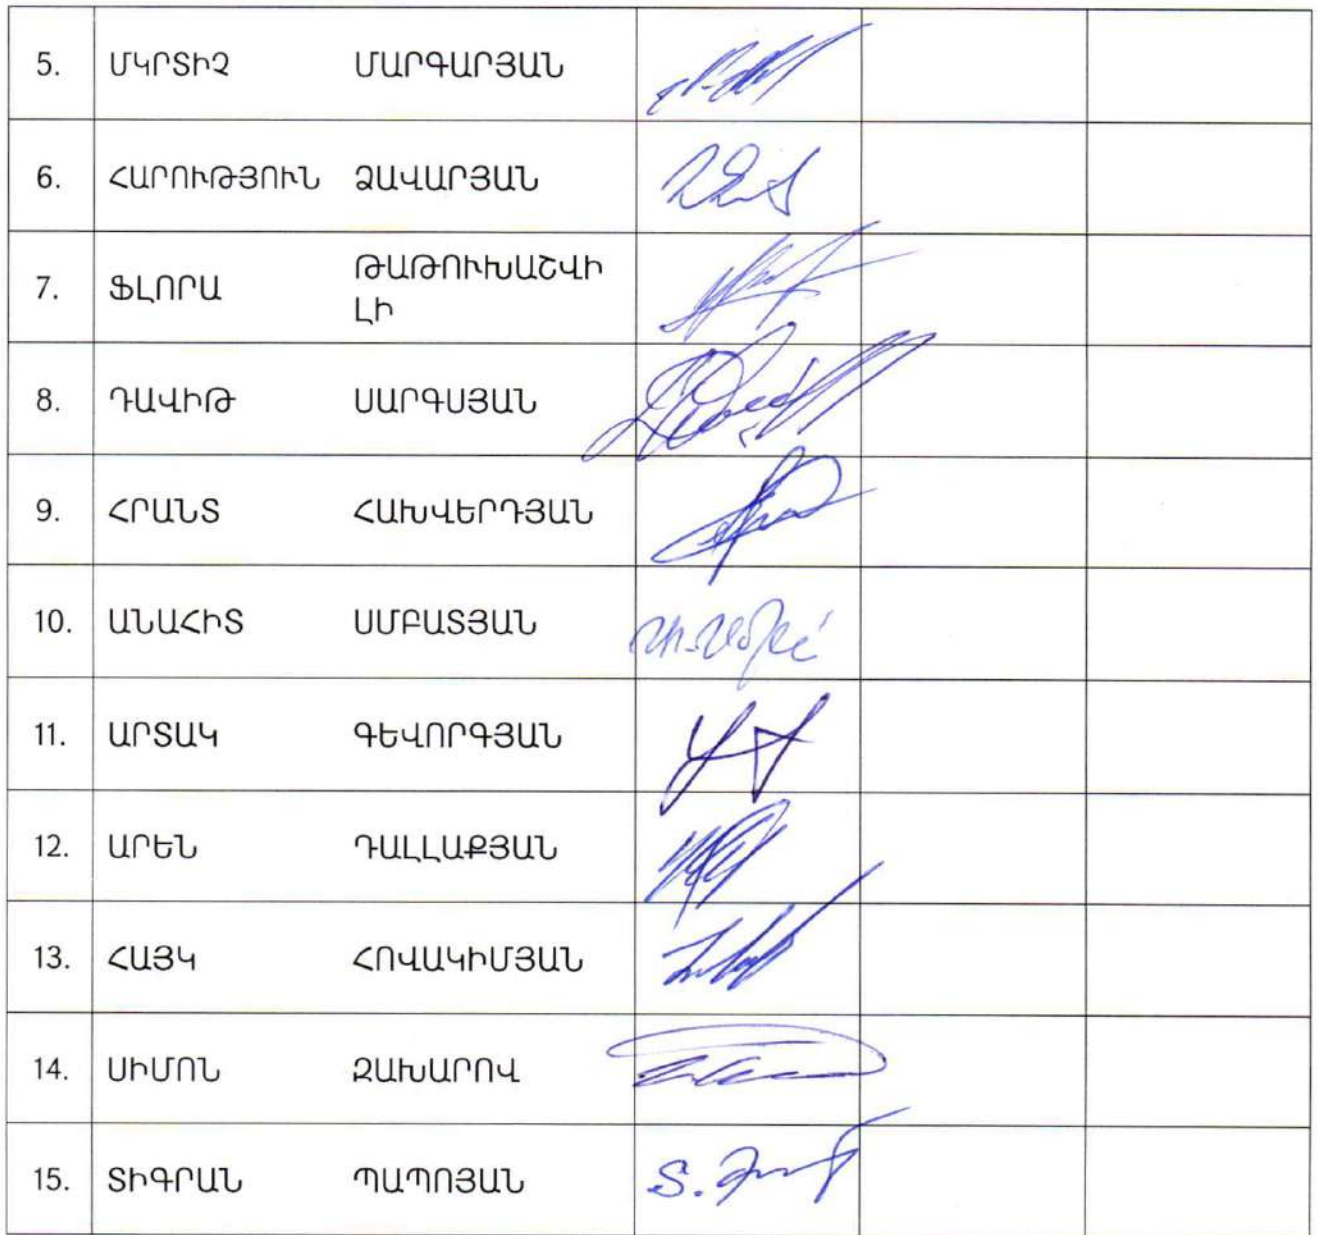 5. ՄԿՐՏԻՉ ՄԱՐԳԱՐՅԱՆ
6. ՀԱՐՈՒԹՅՈՒՆ ՁԱՎԱՐՅԱՆ
7. ՖԼՈՐԱ ԹԱԹՈՒԽԱՇՎԻ
ԼԻ
8. ԴԱՎԻԹ ՍԱՐԳՍՅԱՆ
9. ՀՐԱՆՏ ՀԱԽՎԵՐԴՅԱՆ
10. ԱՆԱՀԻՏ ՍՄԲԱՏՅԱՆ
11. ԱՐՏԱԿ ԳԵՎՈՐԳՅԱՆ
12. ԱՐԵՆ ԴԱԼԼԱՔՅԱՆ
13. ՀԱՅԿ ՀՈՎԱԿԻՄՅԱՆ
14. ՍԻՄՈՆ ԶԱԽԱՐՈՎ
15. ՏԻԳՐԱՆ ՊԱՊՈՅԱՆ